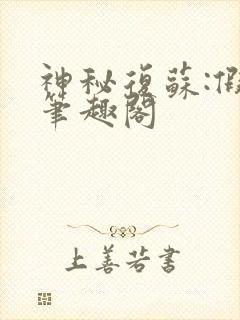 神秘復蘇:假
筆趣閣
上善若書